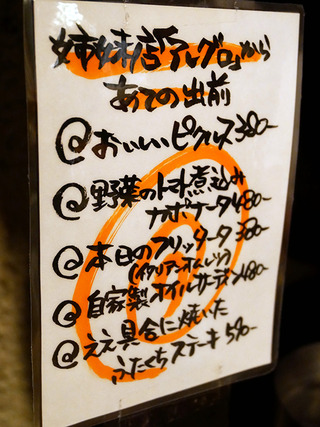 姉妹店「アレグロ」から
あての出前
@おいしいピクルス380-
@野菜のトマト煮込み
カポナータ480-
@本日のフリッタータ380-
(イタリアンオムレツ)
@自家製オイルサーディン480-
@ええ具合に焼いた
ふたくちステーキ590-